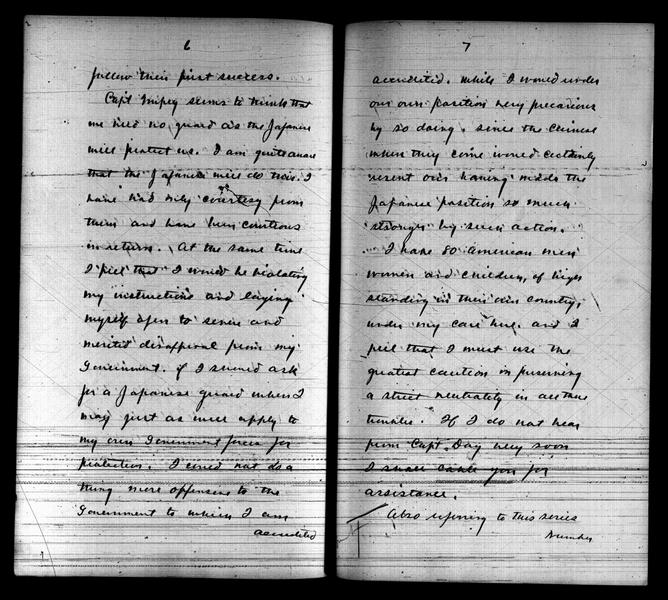 6
follow their first success.
Capt Impey seems to think that
we need no guard as the Japanese
will protect us. I am quite aware
that the Japanese will do this. I
have had only courtesy from
them and have been courteous
in return. At the same time
I feel that I would be violating
my instructions and laying
myself open to severe and
merited disapproval from my
Government. if I should ask
for a Japanese guard when I
may just as well apply to
my own Government forces for
protection. I could not do a
thing more offensive to the
Government to which I am
accredited
7
accredited. While I would render
our own position very precarious
by so doing. since the Chinese
when they come would certainly
resent our having made the
Japanese position so much
stronger by such action.
I have 80 American men
women and children, of high
standing in their own country,
under my care here. and I
feel that I must use the
greatest caution in preserving
a strict neutrality in all these
troubles. If I do not hear
from Capt. Day very soon
I shall cable you for
assistance.
Also referring to this series
Number